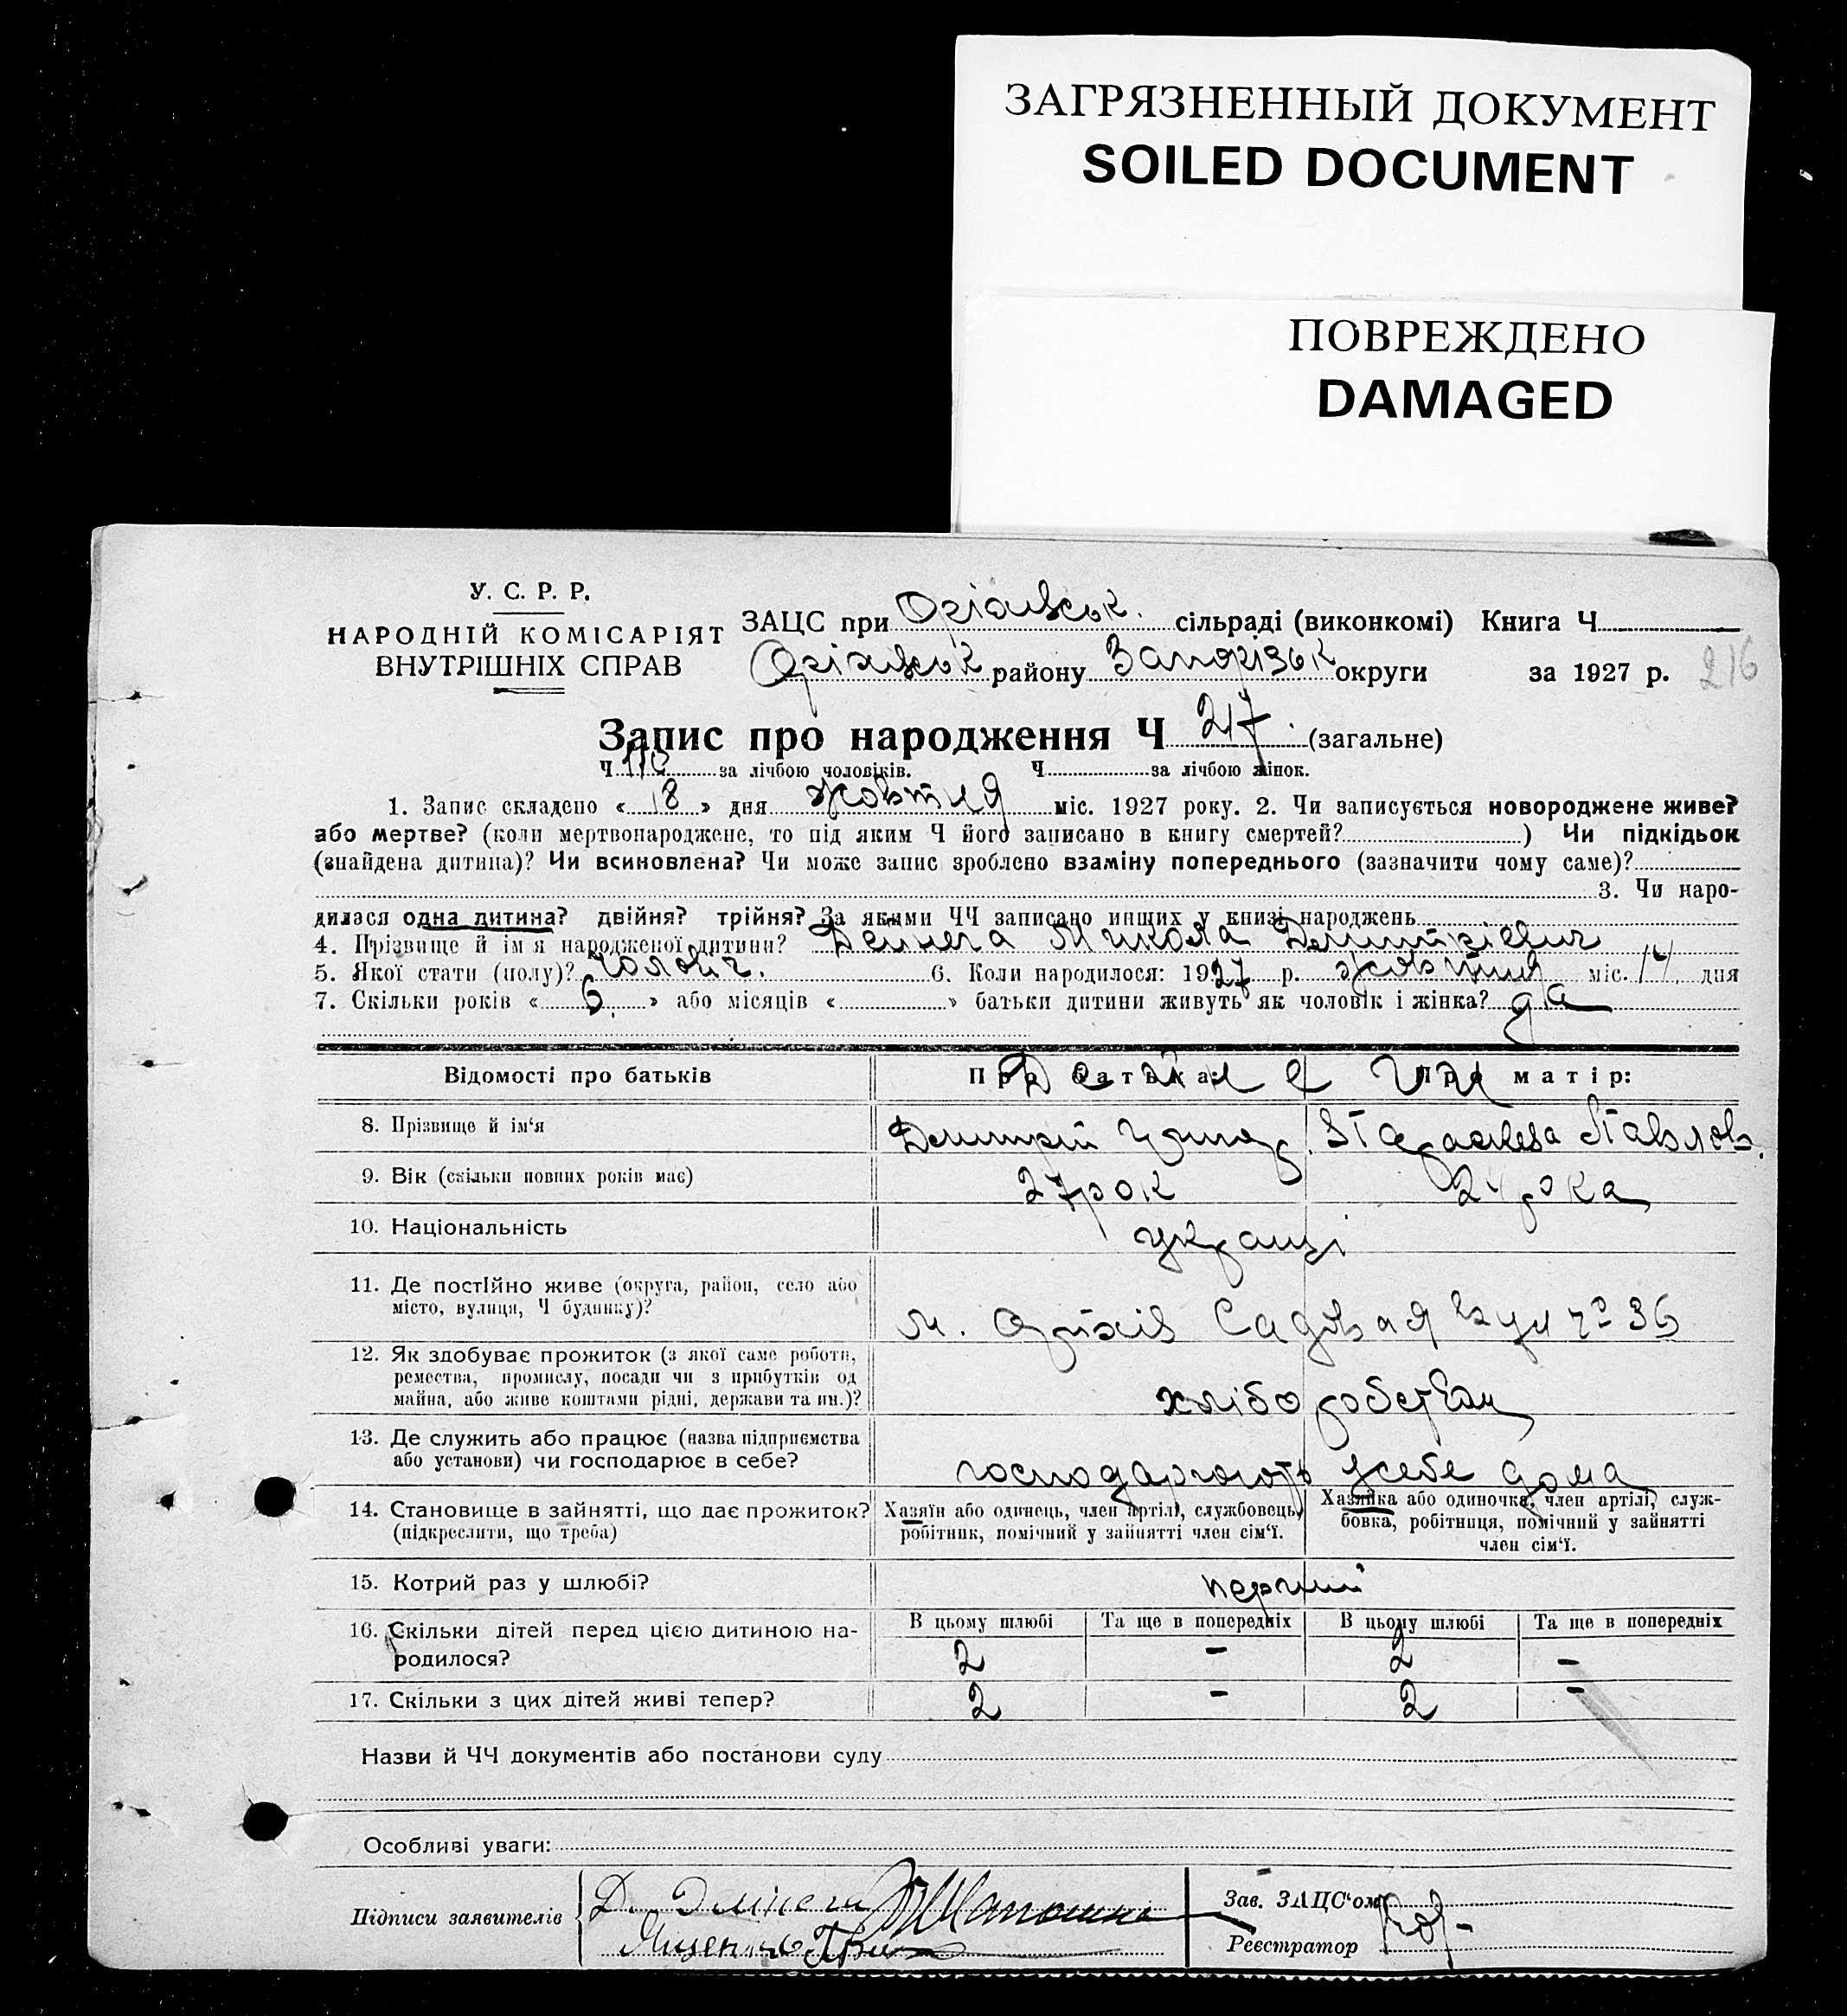 ЗАГРЯЗНЕННЫЙ ДОКУМЕНТ
SOILED DOCUMENT
ПОВРЕЖДЕНО
DAMAGED
У. С. Р. Р.
НАРОДНІЙ КОМІСАРІЯТ
ВНУТРІШНІХ СПРАВ
ЗАЦС при Оріхівськ. сільраді (виконкомі) Книга Ч
Оріхівськ району Запорізьк округи за 1927 р. 216
Запис про народження Ч 217. (загальне)
Ч 110 за лічбою чоловіків. Ч за лічбою жінок.
1. Запис складено « 18 » дня жовтня міс. 1927 року. 2. Чи записується новороджене живе?
або мертве? (коли мертвонароджене, то під яким Ч його записано в книгу смертей? ) Чи підкідьок
(знайдена дитина)? Чи всиновлена? Чи може запис зроблено взаміну попереднього (зазначити чому саме)?
3. Чи наро-
дилася одна дитина? двійня? трійня? За якими ЧЧ записано инших у книзі народжень
4. Прізвище й ім'я народженої дитини? Дейнега Микола Дмитрієвич
5. Якої стати (полу)? Чоловіч. 6. Коли народилося: 1927 р. жовтня міс. 14 дня
7. Скільки років « 6. » або місяців « » батьки дитини живуть як чоловік і жінка? да
Відомості про батьків Про батька: Про матір:
Дейнеги
8. Прізвище й ім'я Дмитрій Павлов.
9. Вік (скільки повних років має) 27 рок 24 рока
10. Національність українці
11. Де постійно живе (округа, район, село або
місто, вулиця, Ч будинку)?
м. Оріхів Садовая вул № 36
12. Як здобуває прожиток (з якої саме роботи,
ремества, промислу, посади чи з прибутків од
майна, або живе коштами рідні, держави та ин.)?
хлібороб
13. Де служить або працює (назва підприємства
або установи) чи господарює в себе?
господарюють усебе дома
14. Становище в зайнятті, що дає прожиток?
(підкреслити, що треба)
Хазяїн або одинець, член артілі, службовець,
робітник, помічний у зайнятті член сім'ї.
Хазяйка або одиночка, член артілі, служ-
бовка, робітниця, помічний у зайнятті
член сім'ї.
15. Котрий раз у шлюбі? перший
В цьому шлюбі Та ще в попередніх В цьому шлюбі Та ще в попередніх
16. Скільки дітей перед цією дитиною на-
родилося?
2 - 2 -
17. Скільки з цих дітей живі тепер? 2 - 2 -
Назви й ЧЧ документів або постанови суду
Особливі уваги:
Підписи заявителів
Зав. ЗАЦС'ом
Реєстратор